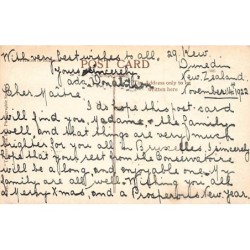 With very best wishes to all. 29. View
Yours sincerely, Dunedin
POST CARD
Ada Donaldson. New Zealand.
November 14th 1922
Cher Maître
I do hope this post card
will find you, Madame & the family
well and that things are very much
brighter for you all in Bruxelles. I sincerely
hope that your rest from the Conservatoire
will be a long and enjoyable one. My
family are all well. Wishing you all
a Merry Xmas, and a Prosperous New Year.